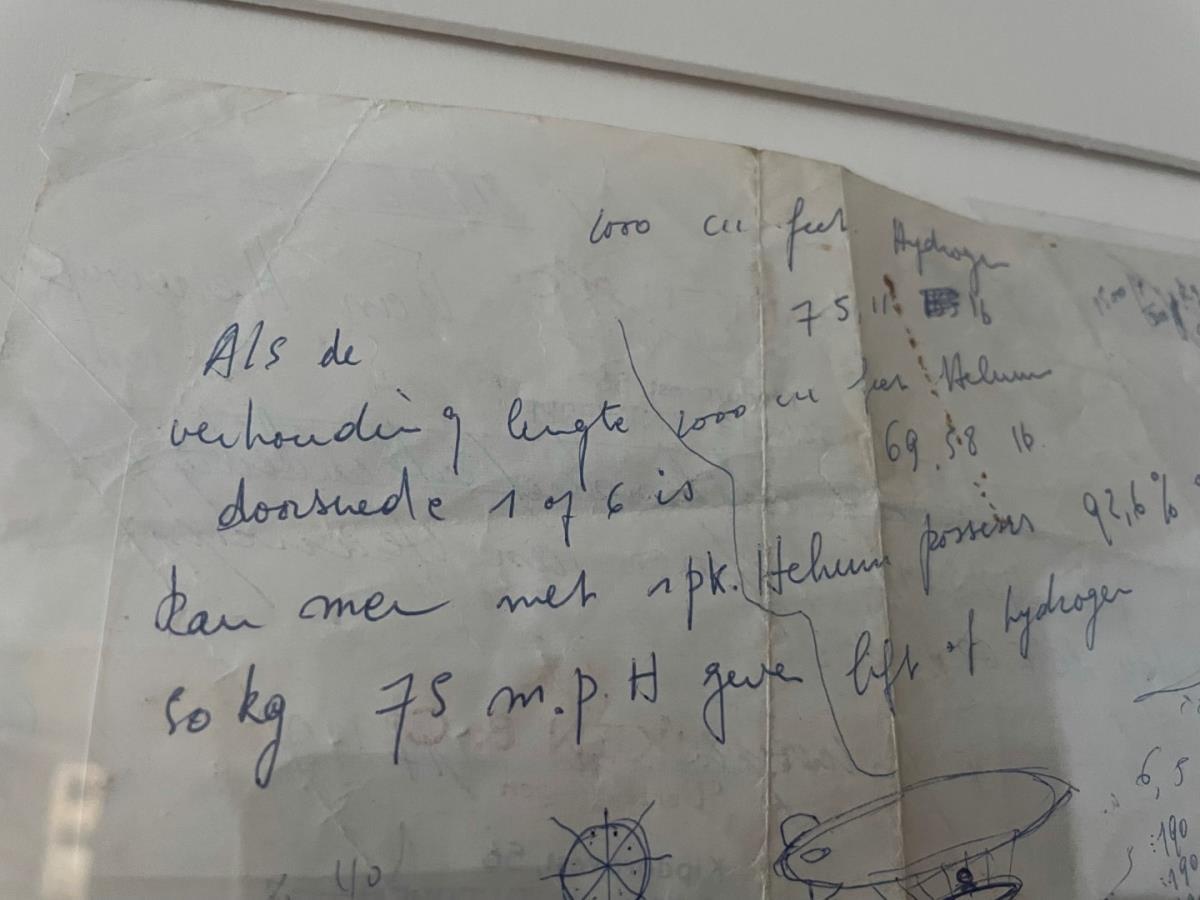 1000 cu feet Hydrogen
75,11 lb
1000 cu feet Helium
69,58 lb.
Helium possesses 92,6%
lift of hydrogen
Als de
verhouding lengte
doorsnede 1 op 6 is
kan men met 1 pk.
50 kg 75 m.p.H geven
40
6,5
:190
:190